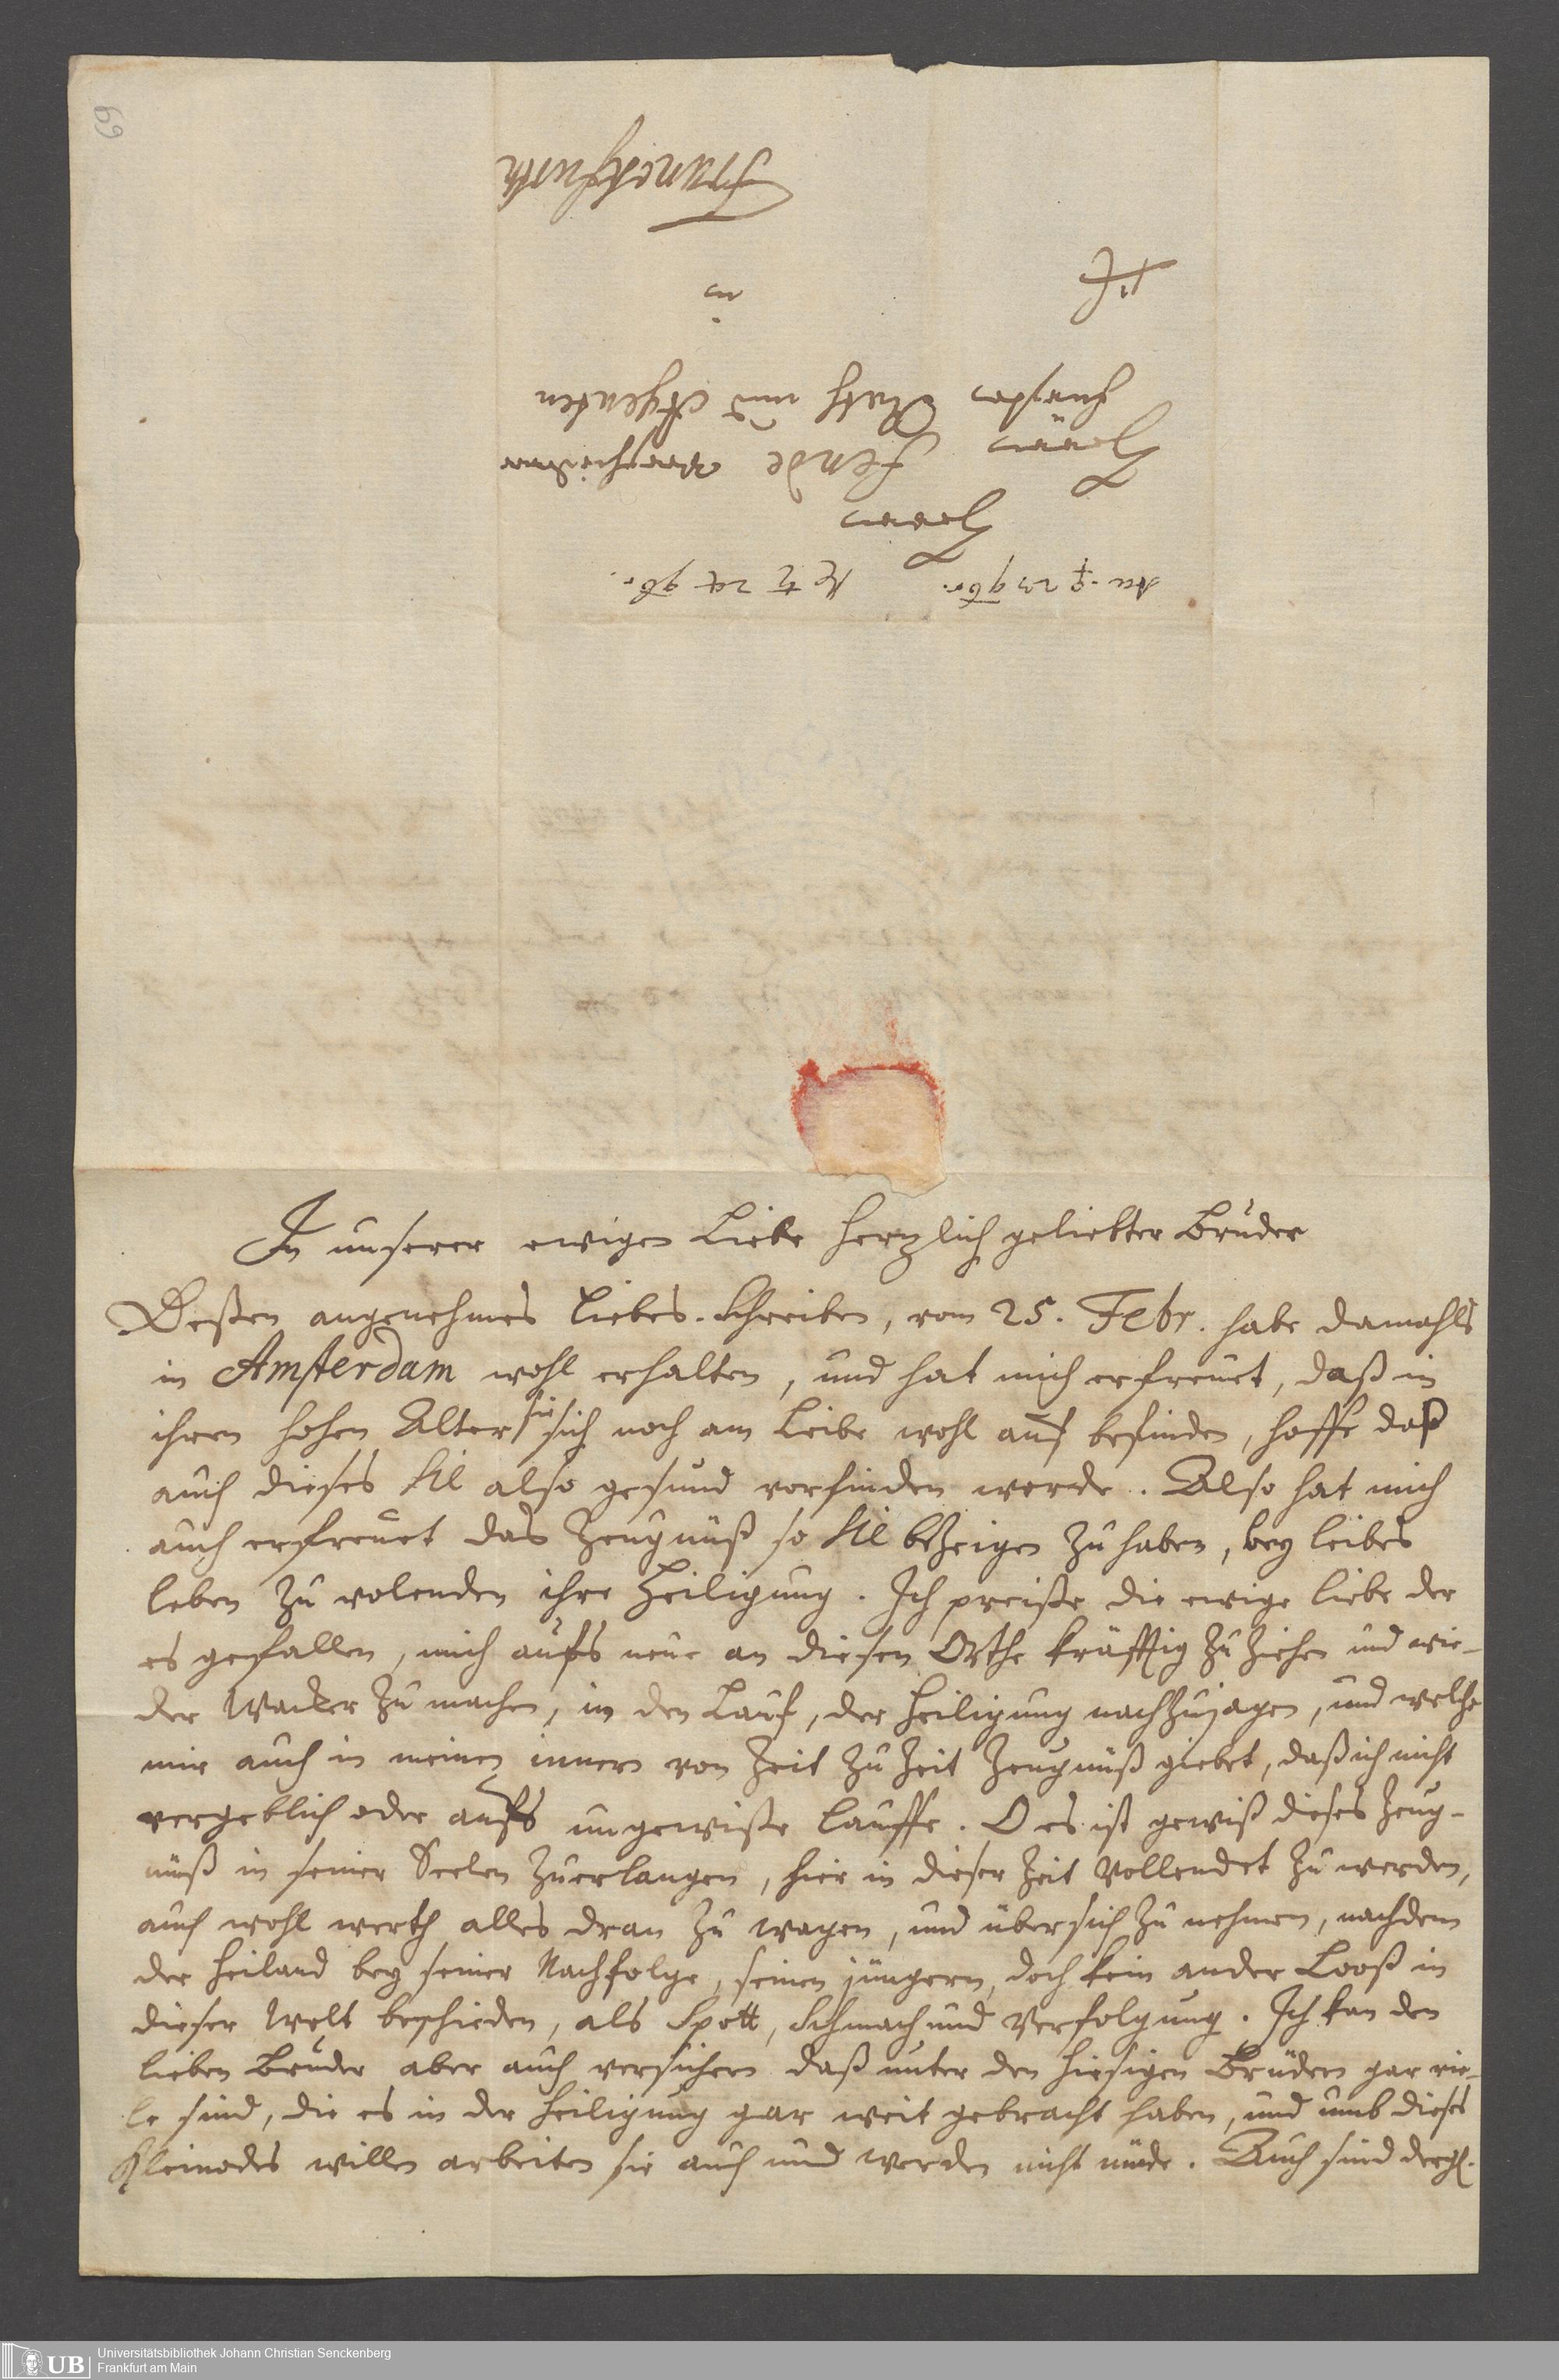 69
A ♀ 23 9br. ♄ 24 9br.
Herrn
Herrn Fende
Rath und Agenten
in
Franckfurth
In unserer ewigen Liebe Hertzlich geliebter Bruder
Deßen angenehmes liebes-Schreiben, vom 25. Febr. habe damahls
in Amsterdam wohl erhalten, und hat mich erfreuet, daß in
ihren hohen Alter sie sich noch am Leibe wohl auf befinden, hoffe daß
auch dieses Sie also gesund vorfinden werde. Also hat mich
auch erfreuet das Zeugnüß so Sie bezeigen zu haben, bey leibes
leben zu volenden ihre Heiligung. Ich preiße die ewige liebe der
es gefallen, mich aufs neue an diesen Orthe kräfftig zu ziehen und wie-
der Wacker zu machen, in den Lauf, der Heiligung nachzujagen, und welche
mir auch in meinen innern von Zeit zu Zeit Zeugnüß giebet, daß ich nicht
vergeblich oder aufs ungewiße lauffe. O es ist gewiß dieses Zeug-
nüß in seiner Seelen zuerlangen, hier in dieser Zeit Vollendet zu werden,
auch wohl werth alles dran zu wagen, und über sich zu nehmen, nachdem
der Heiland bey seiner Nachfolge, seinen jüngern, doch kein ander Looß in
dieser Welt beschieden, als Spott, Schmach und Verfolgung. Ich kan den
lieben Bruder aber auch versichern daß unter den hiesigen Brüdern gar vie-
le sind, die es in der Heiligung gar weit gebracht haben, und umb dieses
Kleinodes willen arbeiten sie auch und werden nicht müde. Auch sind dergl.
UB Universitätsbibliothek Johann Christian Senckenberg
Frankfurt am Main